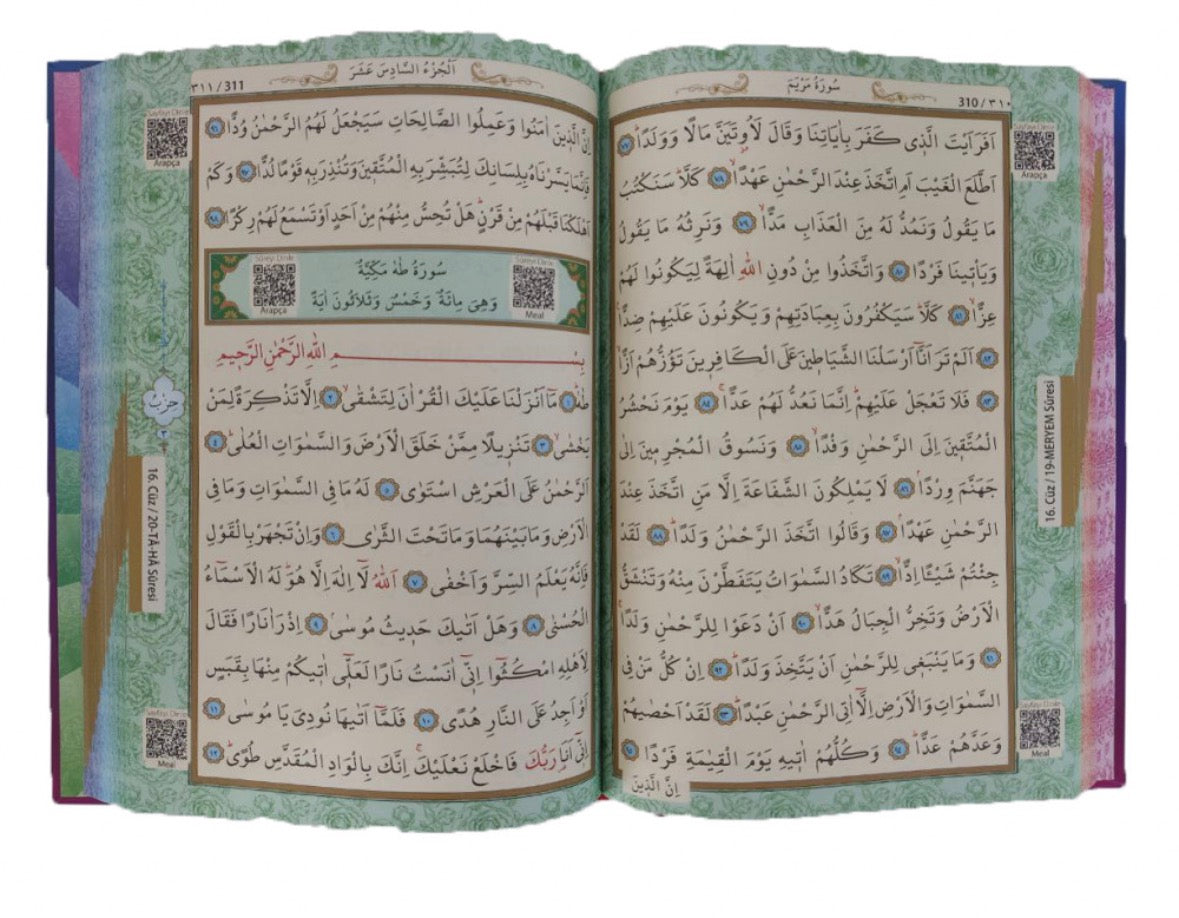 سُورَةُ مَرْيَمَ
310 / ٣١٠
Sayfayı Dinle
Arapça
اَفَرَاَيْتَ الَّذ۪ي كَفَرَ بِاٰيَاتِنَا وَقَالَ لَاُو۫تَيَنَّ مَالًا وَوَلَدًاۜ ﴿٧٧﴾
اَطَّلَعَ الْغَيْبَ اَمِ اتَّخَذَ عِنْدَ الرَّحْمٰنِ عَهْدًاۙ ﴿٧٨﴾ كَلَّاۜ سَنَكْتُبُ
مَا يَقُولُ وَنَمُدُّ لَهُ مِنَ الْعَذَابِ مَدًّاۙ ﴿٧٩﴾ وَنَرِثُهُ مَا يَقُولُ
وَيَأْت۪ينَا فَرْدًا ﴿٨٠﴾ وَاتَّخَذُوا مِنْ دُونِ اللّٰهِ اٰلِهَةً لِيَكُونُوا لَهُمْ
عِزًّاۙ ﴿٨١﴾ كَلَّاۜ سَيَكْفُرُونَ بِعِبَادَتِهِمْ وَيَكُونُونَ عَلَيْهِمْ ضِدًّا۟
﴿٨٢﴾ اَلَمْ تَرَ اَنَّٓا اَرْسَلْنَا الشَّيَاط۪ينَ عَلَى الْكَافِر۪ينَ تَؤُزُّهُمْ اَزًّاۙ
﴿٨٣﴾ فَلَا تَعْجَلْ عَلَيْهِمْۜ اِنَّمَا نَعُدُّ لَهُمْ عَدًّاۚ ﴿٨٤﴾ يَوْمَ نَحْشُرُ
الْمُتَّق۪ينَ اِلَى الرَّحْمٰنِ وَفْدًاۙ ﴿٨٥﴾ وَنَسُوقُ الْمُجْرِم۪ينَ اِلٰى
جَهَنَّمَ وِرْدًاۢ ﴿٨٦﴾ لَا يَمْلِكُونَ الشَّفَاعَةَ اِلَّا مَنِ اتَّخَذَ عِنْدَ
الرَّحْمٰنِ عَهْدًاۢ ﴿٨٧﴾ وَقَالُوا اتَّخَذَ الرَّحْمٰنُ وَلَدًاۜ ﴿٨٨﴾ لَقَدْ
جِئْتُمْ شَيْـًٔا اِدًّاۙ ﴿٨٩﴾ تَكَادُ السَّمٰوَاتُ يَتَفَطَّرْنَ مِنْهُ وَتَنْشَقُّ
الْاَرْضُ وَتَخِرُّ الْجِبَالُ هَدًّاۙ ﴿٩٠﴾ اَنْ دَعَوْا لِلرَّحْمٰنِ وَلَدًاۚ
﴿٩١﴾ وَمَا يَنْبَغ۪ي لِلرَّحْمٰنِ اَنْ يَتَّخِذَ وَلَدًاۜ ﴿٩٢﴾ اِنْ كُلُّ مَنْ فِي
السَّمٰوَاتِ وَالْاَرْضِ اِلَّٓا اٰتِي الرَّحْمٰنِ عَبْدًاۜ ﴿٩٣﴾ لَقَدْ اَحْصٰيهُمْ
وَعَدَّهُمْ عَدًّاۜ ﴿٩٤﴾ وَكُلُّهُمْ اٰت۪يهِ يَوْمَ الْقِيٰمَةِ فَرْدًا ﴿٩٥﴾
اِنَّ الَّذ۪ينَ
16. Cüz / 19-MERYEM Sûresi
Sayfayı Dinle
Meal
اَلْجُزْءُ السَّادِسَ عَشَرَ
٣١١ / 311
Sayfayı Dinle
Arapça
اِنَّ الَّذ۪ينَ اٰمَنُوا وَعَمِلُوا الصَّالِحَاتِ سَيَجْعَلُ لَهُمُ الرَّحْمٰنُ وُدًّا ﴿٩٦﴾
فَاِنَّمَا يَسَّرْنَاهُ بِلِسَانِكَ لِتُبَشِّرَ بِهِ الْمُتَّق۪ينَ وَتُنْذِرَ بِه۪ قَوْمًا لُدًّا ﴿٩٧﴾ وَكَمْ
اَهْلَكْنَا قَبْلَهُمْ مِنْ قَرْنٍۜ هَلْ تُحِسُّ مِنْهُمْ مِنْ اَحَدٍ اَوْ تَسْمَعُ لَهُمْ رِكْزًا ﴿٩٨﴾
Sûreyi Dinle
Arapça
سُورَةُ طٰهٰ مَكِّيَّةٌ
وَهِيَ مِائَةٌ وَخَمْسٌ وَثَلَاثُونَ اٰيَةً
Sûreyi Dinle
Meal
بِسْمِ اللّٰهِ الرَّحْمٰنِ الرَّح۪يمِ
طٰهٰ ﴿١﴾ مَٓا اَنْزَلْنَا عَلَيْكَ الْقُرْاٰنَ لِتَشْقٰىۙ ﴿٢﴾ اِلَّا تَذْكِرَةً لِمَنْ
يَخْشٰىۙ ﴿٣﴾ تَنْز۪يلًا مِمَّنْ خَلَقَ الْاَرْضَ وَالسَّمٰوَاتِ الْعُلٰىۜ ﴿٤﴾
اَلرَّحْمٰنُ عَلَى الْعَرْشِ اسْتَوٰى ﴿٥﴾ لَهُ مَا فِي السَّمٰوَاتِ وَمَا فِي
الْاَرْضِ وَمَا بَيْنَهُمَا وَمَا تَحْتَ الثَّرٰى ﴿٦﴾ وَاِنْ تَجْهَرْ بِالْقَوْلِ
فَاِنَّهُ يَعْلَمُ السِّرَّ وَاَخْفٰى ﴿٧﴾ اَللّٰهُ لَٓا اِلٰهَ اِلَّا هُوَۜ لَهُ الْاَسْمَٓاءُ
الْحُسْنٰى ﴿٨﴾ وَهَلْ اَتٰيكَ حَد۪يثُ مُوسٰىۢ ﴿٩﴾ اِذْ رَاٰ نَارًا فَقَالَ
لِاَهْلِهِ امْكُثُٓوا اِنّ۪ٓي اٰنَسْتُ نَارًا لَعَلّ۪ٓي اٰت۪يكُمْ مِنْهَا بِقَبَسٍ
اَوْ اَجِدُ عَلَى النَّارِ هُدًى ﴿١٠﴾ فَلَمَّٓا اَتٰيهَا نُودِيَ يَا مُوسٰى ﴿١١﴾
اِنّ۪ٓي اَنَا۬ رَبُّكَ فَاخْلَعْ نَعْلَيْكَۚ اِنَّكَ بِالْوَادِ الْمُقَدَّسِ طُوًىۜ ﴿١٢﴾
حزب
٢
16. Cüz / 20-TÂ-HÂ Sûresi
Sayfayı Dinle
Meal